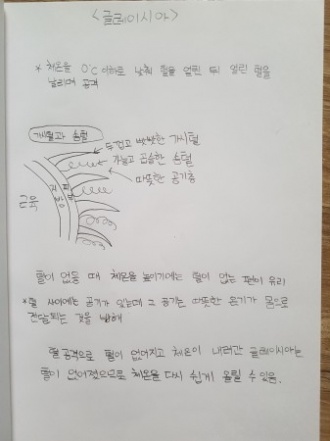 <글레이시아>
* 체온을 0℃ 이하로 낮춰 털을 얼린 뒤 얼린 털을
날리며 공격
가시털과 솜털
두껍고 빳빳한 가시털
가늘고 곱슬한 솜털
따뜻한 공기층
근육
지방
피부
털이 없을 때 체온을 높이기에는 털이 없는 편이 유리
* 털 사이에는 공기가 있는데 그 공기는 따뜻한 온기가 몸으로
전달되는 것을 방해
털 공격으로 털이 없어지고 체온이 내려간 글레이시아는
털이 없어졌으므로 체온을 다시 쉽게 올릴 수 있음.